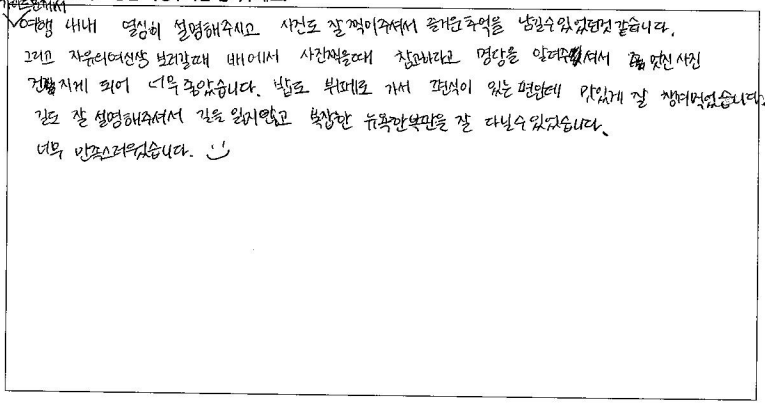 가이드분께서
여행 내내 열심히 설명해주시고 사진도 잘 찍어주셔서 즐거운 추억을 남길수 있었던것 같습니다.
그리고 자유의여신상 보러갈때 배에서 사진찍을때 참고하라고 명당을 알려주셔서 멋진 사진
건지게 되어 너무 좋았습니다. 밥도 뷔페로 가서 편식이 있는 편인데 맛있게 잘 챙겨먹었습니다.
길도 잘 설명해주셔서 길을 잃지않고 복잡한 뉴욕한복판을 잘 다닐수 있었습니다.
너무 만족스러웠습니다.